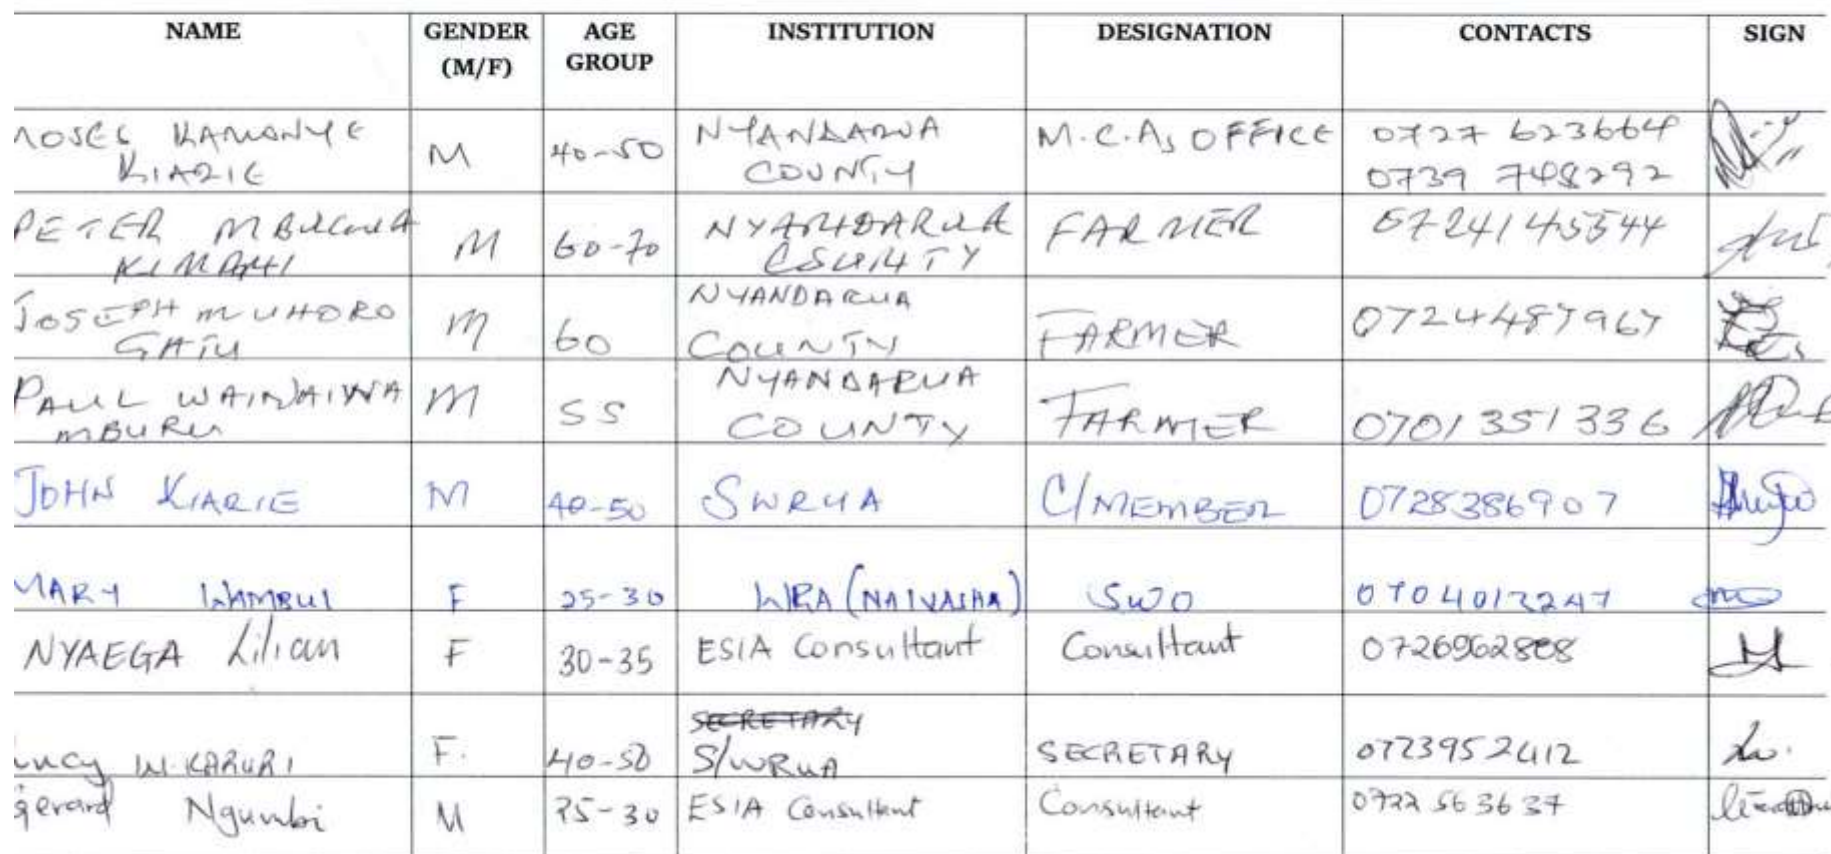 NAME GENDER (M/F) AGE GROUP INSTITUTION DESIGNATION CONTACTS SIGN
MOSES KAMONYE KIARIE M 40-50 NYANDARUA COUNTY M.C.As OFFICE 0727 623664 0739 748292
PETER MBUGUA KIMANI M 60-70 NYANDARUA COUNTY FARMER 0724145544
JOSEPH MUHORO GATU M 60 NYANDARUA COUNTY FARMER 0724487967
PAUL WAINAINA MBURU M 55 NYANDARUA COUNTY FARMER 0701351336
JOHN KIARIE M 40-50 SWRUA C/MEMBER 0728386907
MARY WAMBUI F 25-30 WRA (NAIVASHA) SWO
NYAEGA Lilian F 30-35 ESIA Consultant Consultant
ncy W. KARURI F. 40-50 SECRETARY S/WRUA SECRETARY 0723952412
gerard Ngumbi M 25-30 ESIA Consultant Consultant 0722 563637